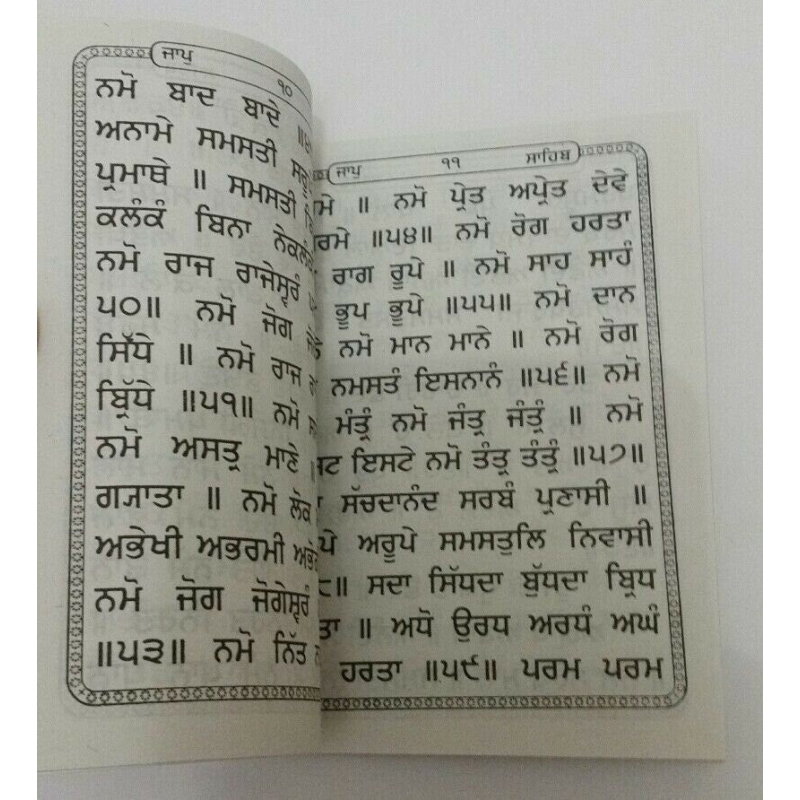 ਜਾਪੁ ੧੦
ਨਮੋ ਬਾਦ ਬਾਦੇ
ਅਨਾਮੇ ਸਮਸਤੀ
ਪ੍ਰਮਾਥੇ ॥ ਸਮਸਤੀ
ਕਲੰਕੰ ਬਿਨਾ
ਨਮੋ ਰਾਜ ਰਾਜੇਸ੍ਵਰੰ
੫੦॥ ਨਮੋ ਜੋਗ
ਸਿੱਧੇ ॥ ਨਮੋ ਰਾਜ
ਬ੍ਰਿੱਧੇ ॥੫੧॥ ਨਮੋ
ਨਮੋ ਅਸਤ੍ਰ ਮਾਣੇ
ਗ੍ਯਾਤਾ ॥ ਨਮੋ ਲੋਕ
ਅਭੇਖੀ ਅਭਰਮੀ
ਨਮੋ ਜੋਗ ਜੋਗੇਸ੍ਵਰੰ
॥੫੩॥ ਨਮੋ ਨਿੱਤ
ਜਾਪੁ ੧੧ ਸਾਹਿਬ
॥ ਨਮੋ ਪ੍ਰੇਤ ਅਪ੍ਰੇਤ ਦੇਵੇ
॥੫੪॥ ਨਮੋ ਰੋਗ ਹਰਤਾ
ਰਾਗ ਰੂਪੇ ॥ ਨਮੋ ਸਾਹ ਸਾਹੰ
ਭੂਪ ਭੂਪੇ ॥੫੫॥ ਨਮੋ ਦਾਨ
ਨਮੋ ਮਾਨ ਮਾਨੇ ॥ ਨਮੋ ਰੋਗ
ਨਮਸਤੰ ਇਸਨਾਨੰ ॥੫੬॥ ਨਮੋ
ਮੰਤ੍ਰੰ ਨਮੋ ਜੰਤ੍ਰ ਜੰਤ੍ਰੰ ॥ ਨਮੋ
ਇਸਟੇ ਨਮੋ ਤੰਤ੍ਰ ਤੰਤ੍ਰੰ ॥੫੭॥
ਸੱਚਦਾਨੰਦ ਸਰਬੰ ਪ੍ਰਣਾਸੀ ॥
ਅਰੂਪੇ ਸਮਸਤੁਲਿ ਨਿਵਾਸੀ
ਸਦਾ ਸਿੱਧਦਾ ਬੁੱਧਦਾ ਬ੍ਰਿਧ
॥ ਅਧੋ ਉਰਧ ਅਰਧੰ ਅਘੰ
ਹਰਤਾ ॥੫੯॥ ਪਰਮ ਪਰਮ